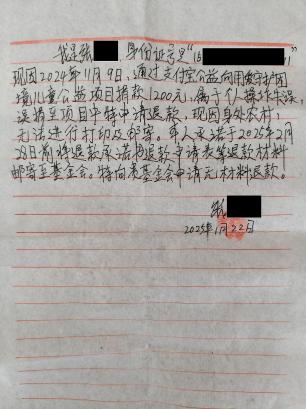 我是张 ，身份证号是"15 "
现因2024年11月9日，通过支付宝公益向用数守护困
境儿童公益项目捐款1200元，属于个人操作失误，
误捐至项目中特申请退款，现因身处农村，
无法进行打印及邮寄。本人承诺于2025年2月
28日前将退款承诺书退款申请表等退款材料
邮寄至基金会。特向贵基金会申请无材料退款。
张
2025年1月22日